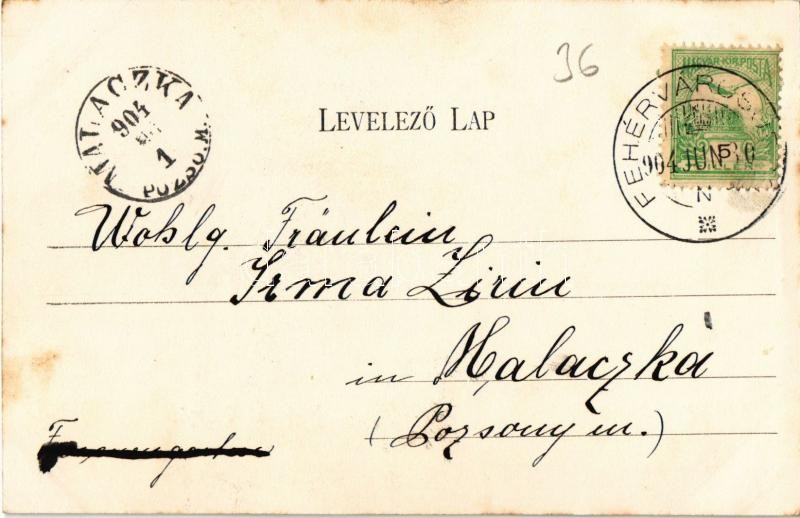 36
MAGYAR KIR. POSTA
FEHÉRVÁRCSU
904 JUN 30
N
5
MALACZKA
904
1
POZSO.M
LEVELEZŐ LAP
Wohlg. Fräulein
Irma Zirin
in Malaczka
(Pozsony m.)